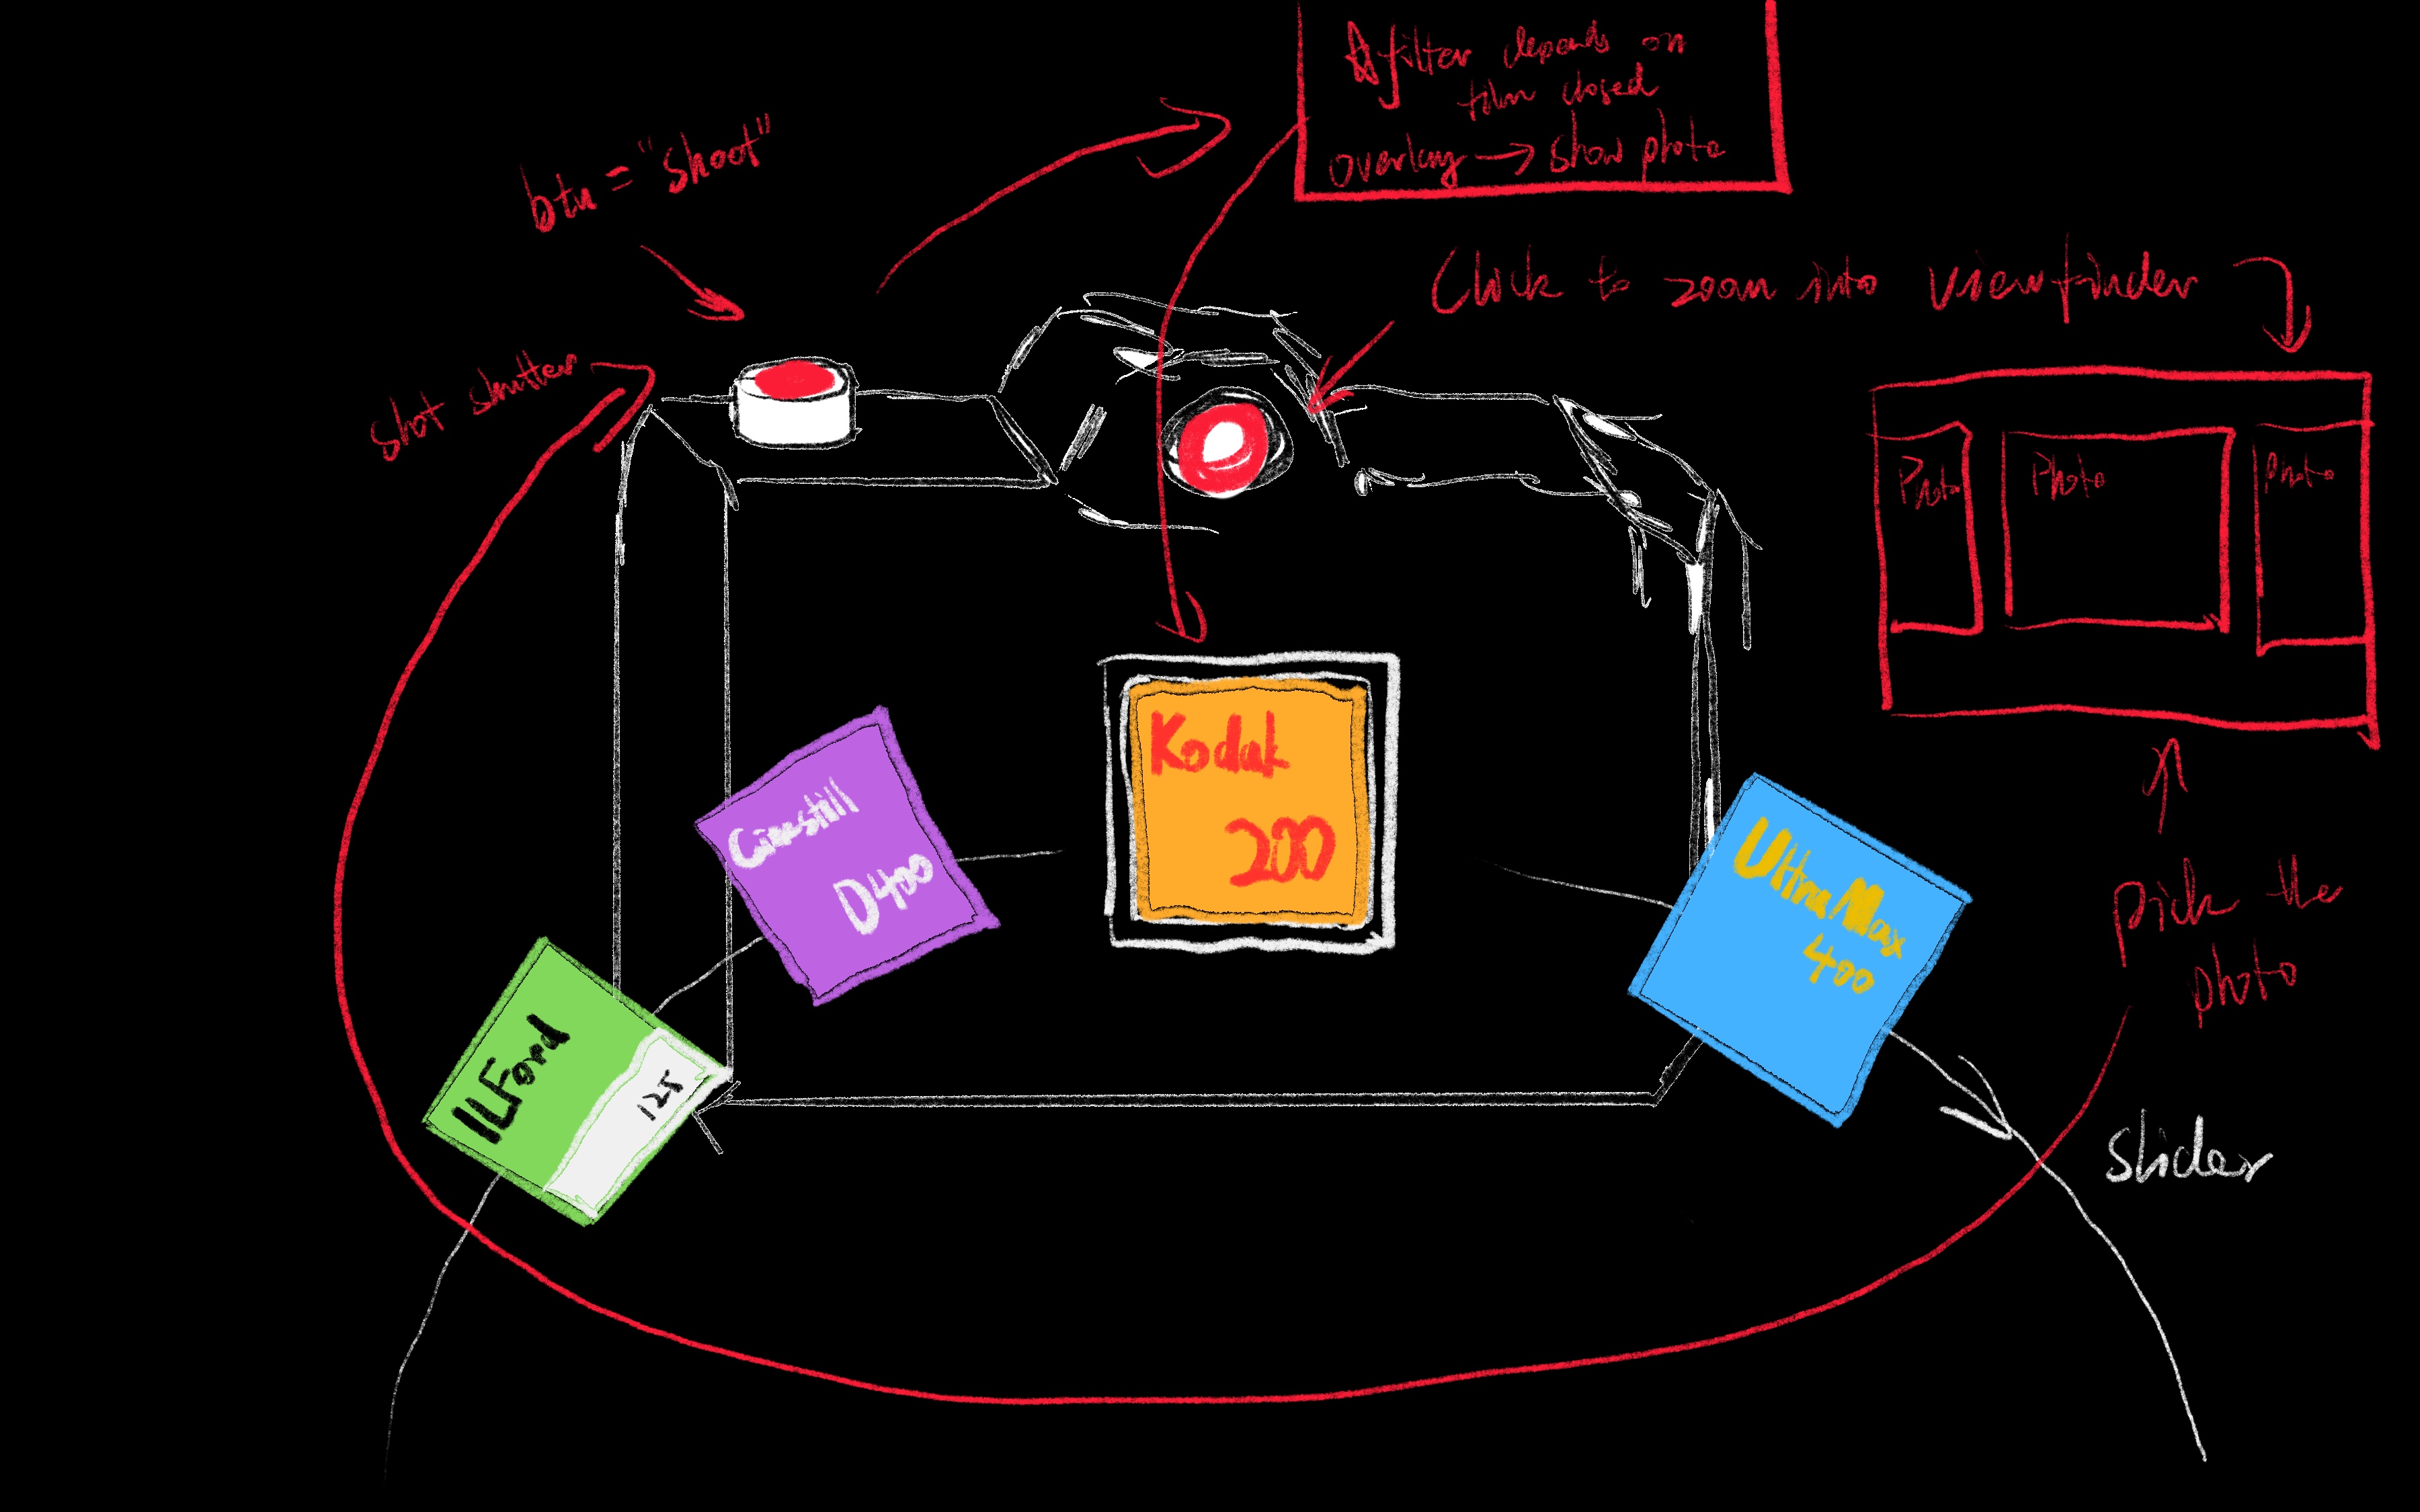 filter depends on
film closed
overlay → show photo
btn = "shoot"
Click to zoom into viewfinder
shot shutter
Photo
Photo
photo
Kodak
200
Cinestill
D400
UltraMax
400
pick the
photo
ILFord
125
slider